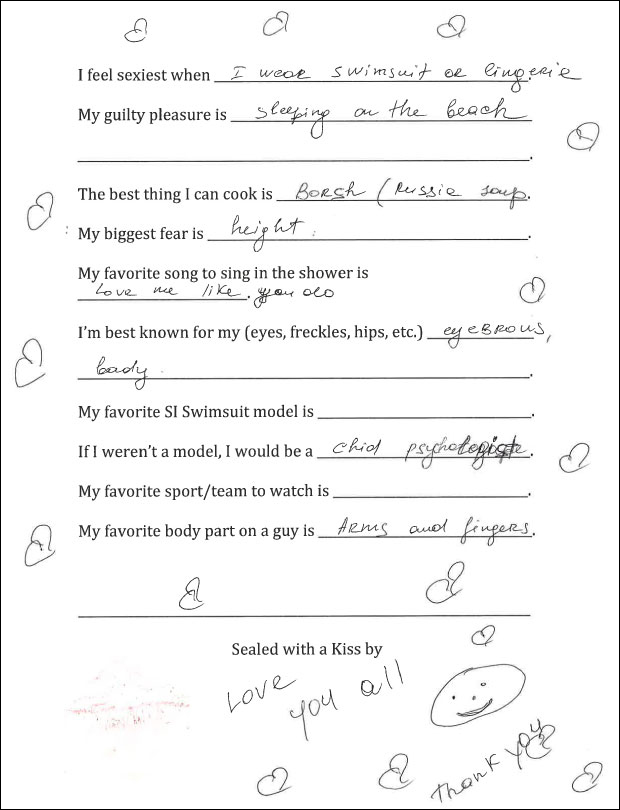 I feel sexiest when I wear swimsuit or lingerie
My guilty pleasure is sleeping on the beach
.
The best thing I can cook is Borsh (Russie soup.
My biggest fear is height.
My favorite song to sing in the shower is
Love me like . you do
I'm best known for my (eyes, freckles, hips, etc.) eyebrows,
body.
My favorite SI Swimsuit model is .
If I weren't a model, I would be a chid psychologist.
My favorite sport/team to watch is .
My favorite body part on a guy is Arms and fingers.
Sealed with a Kiss by
Love
you all
Thank you